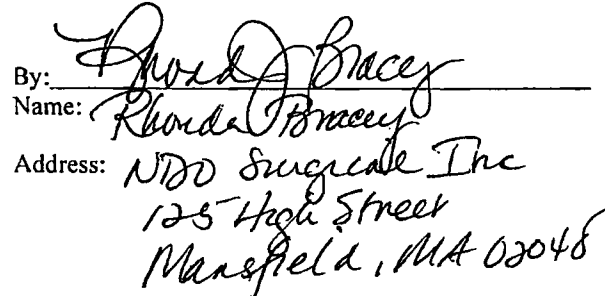 By: Rhonda J Bracey
Name: Rhonda Bracey
Address: NDO Surgical Inc
125 High Street
Mansfield, MA 02048